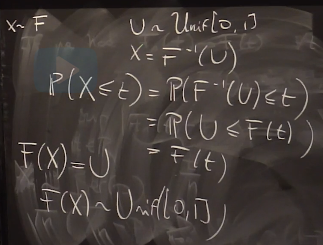 X~F
U ~ Unif[0,1]
X = F⁻¹(U)
P(X≤t) = P(F⁻¹(U)≤t)
= P(U ≤ F(t))
= F(t)
F(X)=U
F(X)~Unif[0,1]